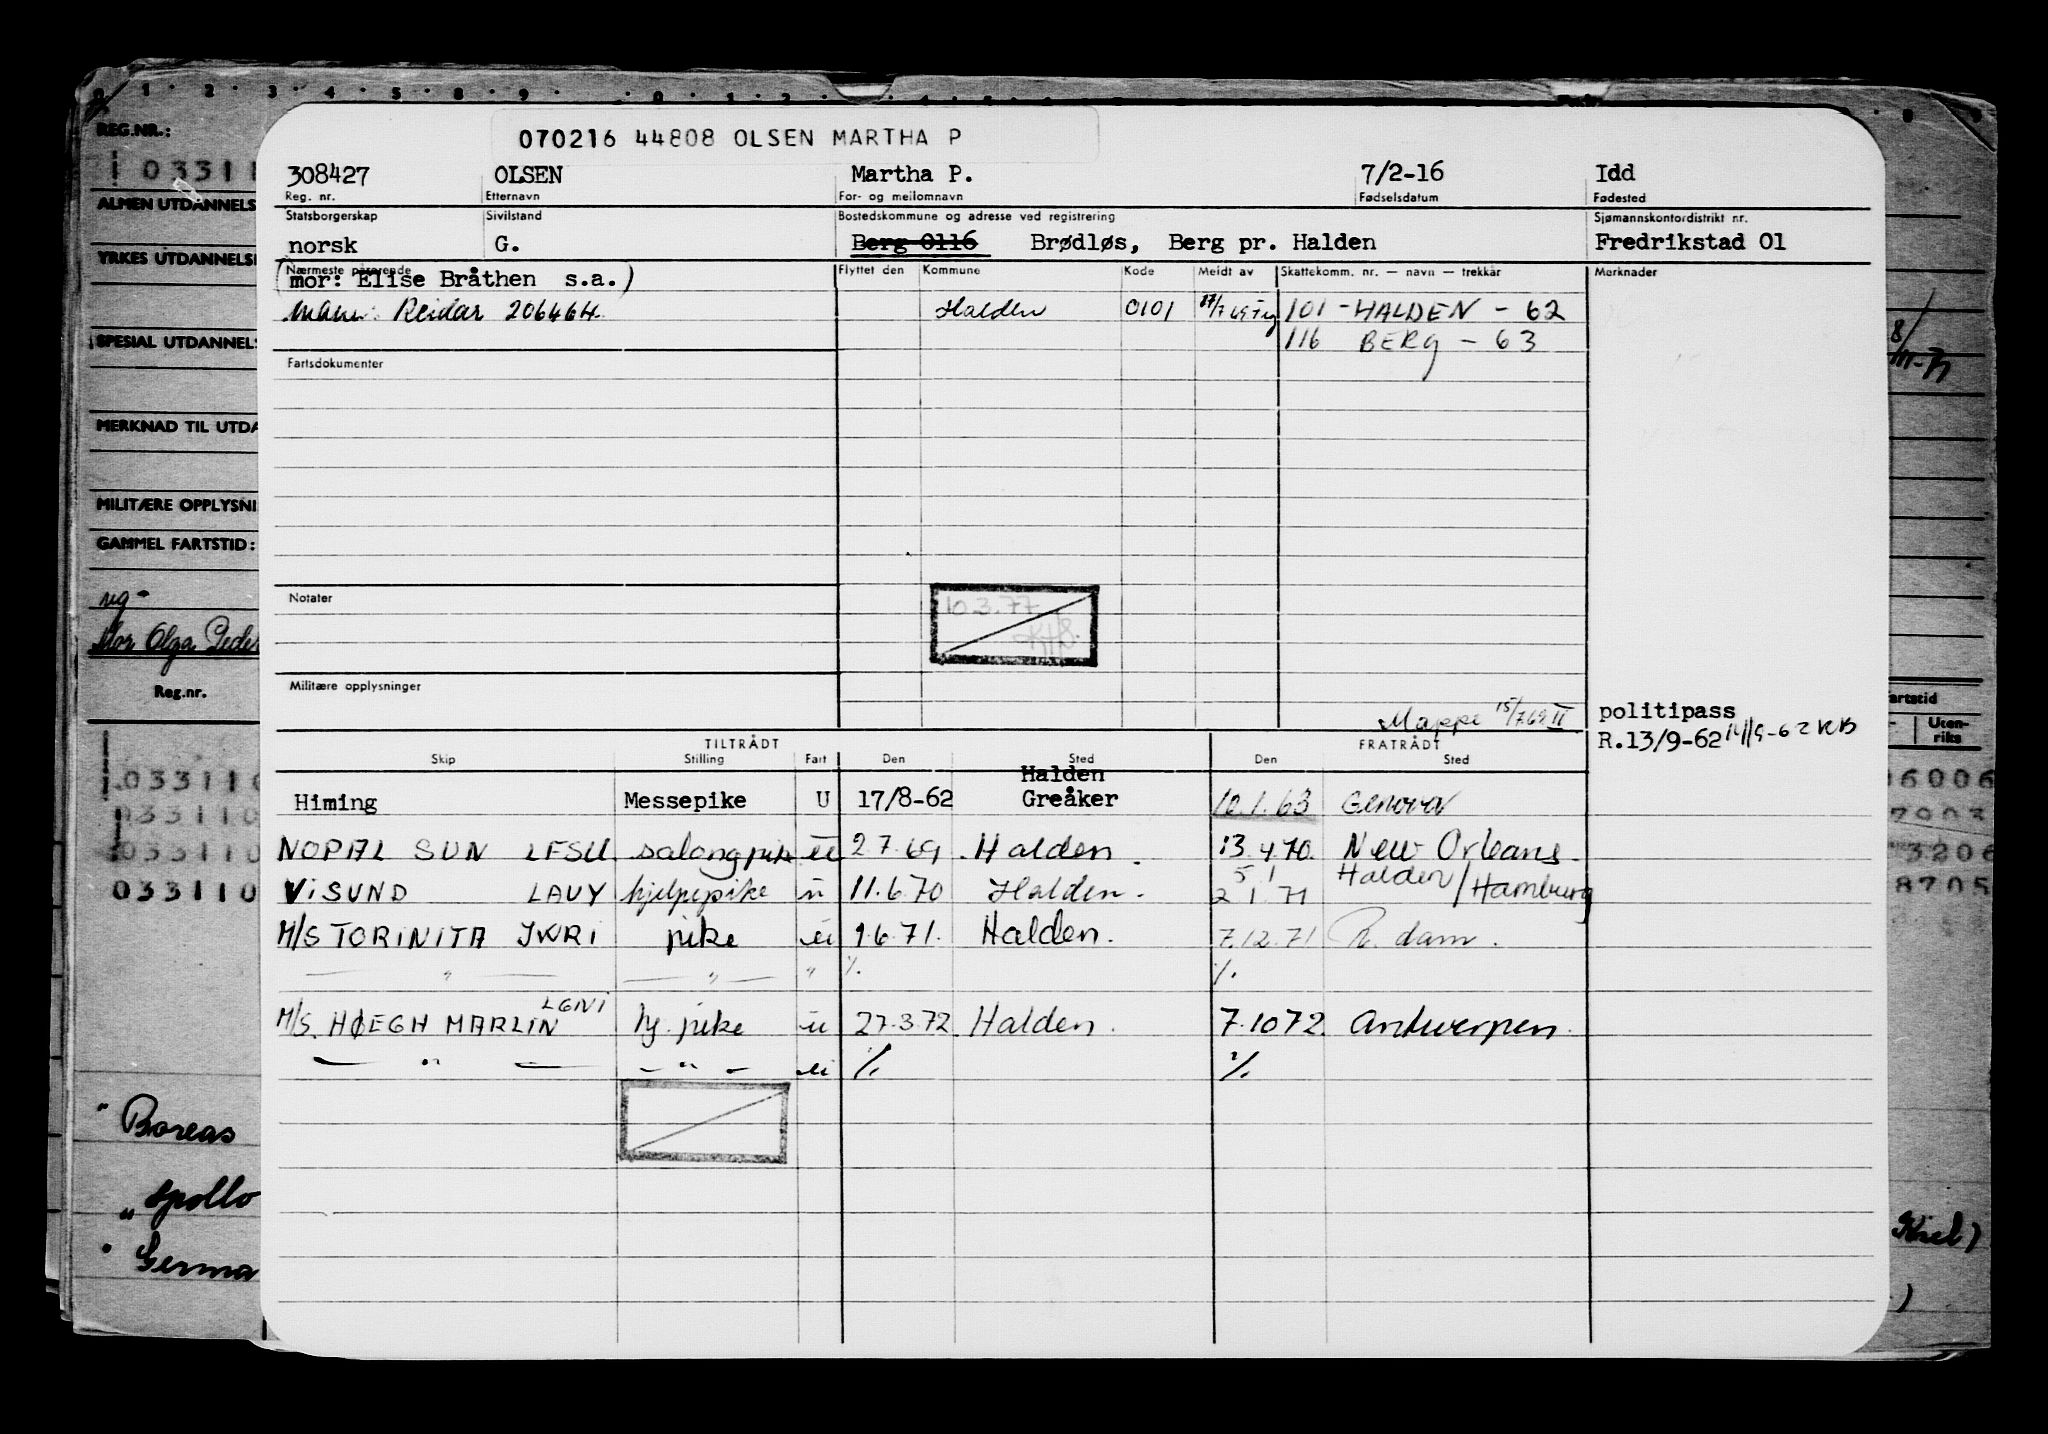 070216 44808 OLSEN MARTHA P
308427 OLSEN Martha P. 7/2-16 Idd
Reg. nr. Etternavn For- og mellomnavn Fødselsdatum Fødested
Statsborgerskap Sivilstand Bostedskommune og adresse ved registrering Sjømannskontordistrikt nr.
norsk G. Berg 0116 Brødløs, Berg pr. Halden Fredrikstad 01
Nærmeste pårørende Flyttet den Kommune Kode Meldt av Skattekomm. nr. — navn — trekkår Merknader
(mor: Elise Bråthen s.a.)
Mann: Reidar 206464 Halden 0101 101 - HALDEN - 62
116 BERG - 63
Fartsdokumenter
Notater
10.3.77
Militære opplysninger
Mappe 15/7 69 II politipass
R.13/9-62
TILTRÅDT FRATRÅDT
Skip Stilling Fart Den Sted Den Sted
Halden
Himing Messepike U 17/8-62 Greåker 10.1.63 Genova
NOPAL SUN LFSU salongpike u 2 7.69 Halden 13.4.70 New Orleans
5 1 Halden/
VISUND LAUY hjelpepike u 11.6.70 Halden 2 1.71 Hamburg
M/S TORINITA JWRI pike u 9.6.71. Halden. 7.12.71 R.dam.
— " — — " — " %. %.
LGNI
M/S. HØEGH MARLIN hj. pike u 27.3.72 Halden. 7.10 72. Antwerpen.
— " — — " — u %. %.
REG.NR.:
03311
ALMEN UTDANNELS
YRKES UTDANNELS
SPESIAL UTDANNELS
MERKNAD TIL UTDA
MILITÆRE OPPLYSNI
GAMMEL FARTSTID:
Mor Olga Peder
Reg.nr.
033110
033110
033110
033110
" Boreas
" Apollo
" Germa
artstid
Uten-
riks
6006
7003
3206
8705
Kiel)
)